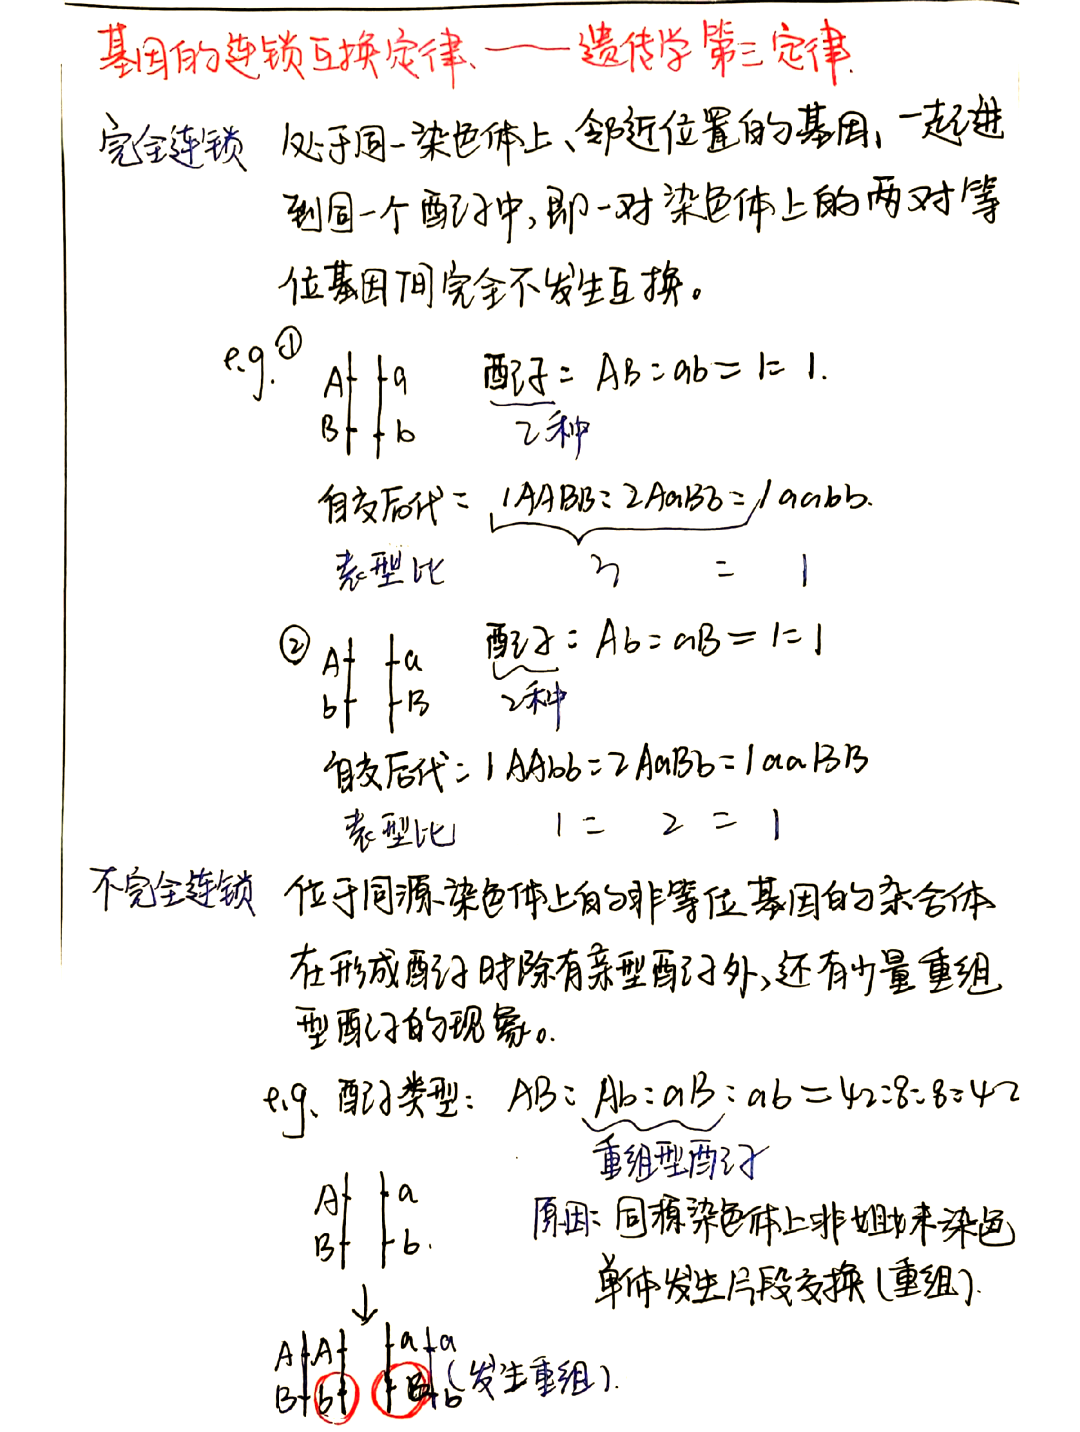 基因的连锁互换定律、——遗传学第三定律.
完全连锁 处于同一染色体上、邻近位置的基因、一起进
到同一个配子中,即一对染色体上的两对等
位基因间完全不发生互换。
e.g.① A a 配子: AB:ab=1:1.
B b 2种
自交后代: 1AABB:2AaBb:1aabb.
表型比 3 : 1
② A a 配子: Ab:aB=1:1
b B 2种
自交后代: 1AAbb:2AaBb:1aaBB
表型比 1: 2: 1
不完全连锁 位于同源染色体上的非等位基因的杂合体
在形成配子时除有亲型配子外,还有少量重组
型配子的现象。
e.g. 配子类型: AB:Ab:aB:ab=42:8:8:42
重组型配子
A a 原因:同源染色体上非姐妹染色
B b. 单体发生片段交换(重组).
↓
A A a a
B b B b (发生重组).